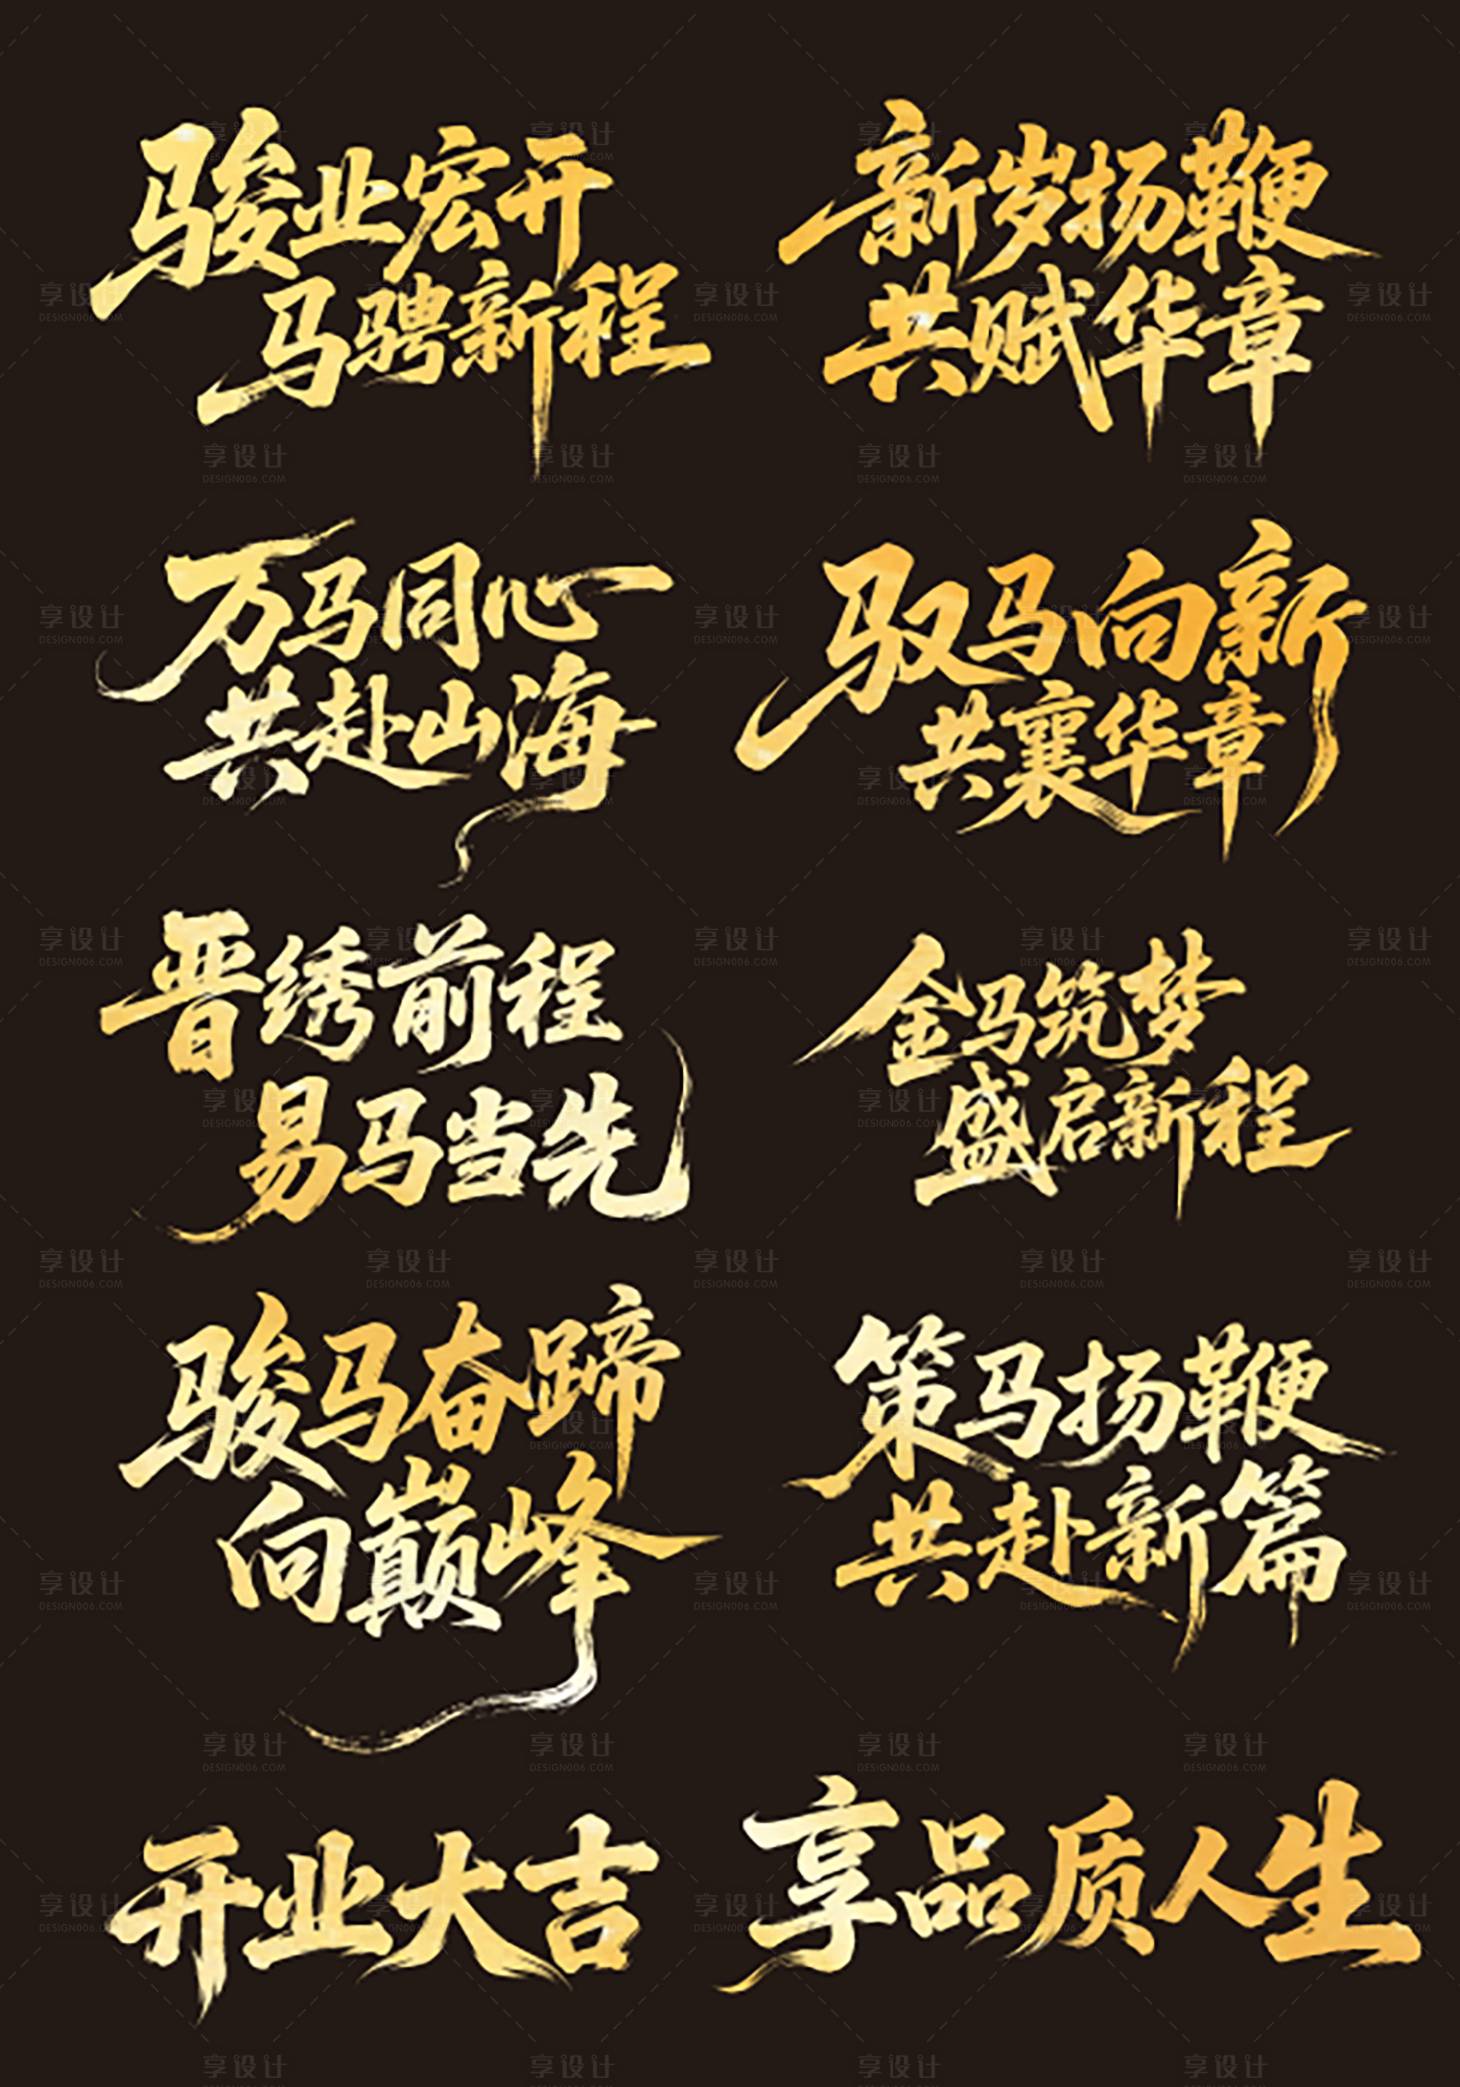 骏业宏开
马骋新程
新岁扬鞭
共赋华章
万马同心
共赴山海
驭马向新
共襄华章
晋绣前程
易马当先
金马筑梦
盛启新程
骏马奋蹄
向巅峰
策马扬鞭
共赴新篇
开业大吉
享品质人生
享设计
DESIGN006.COM